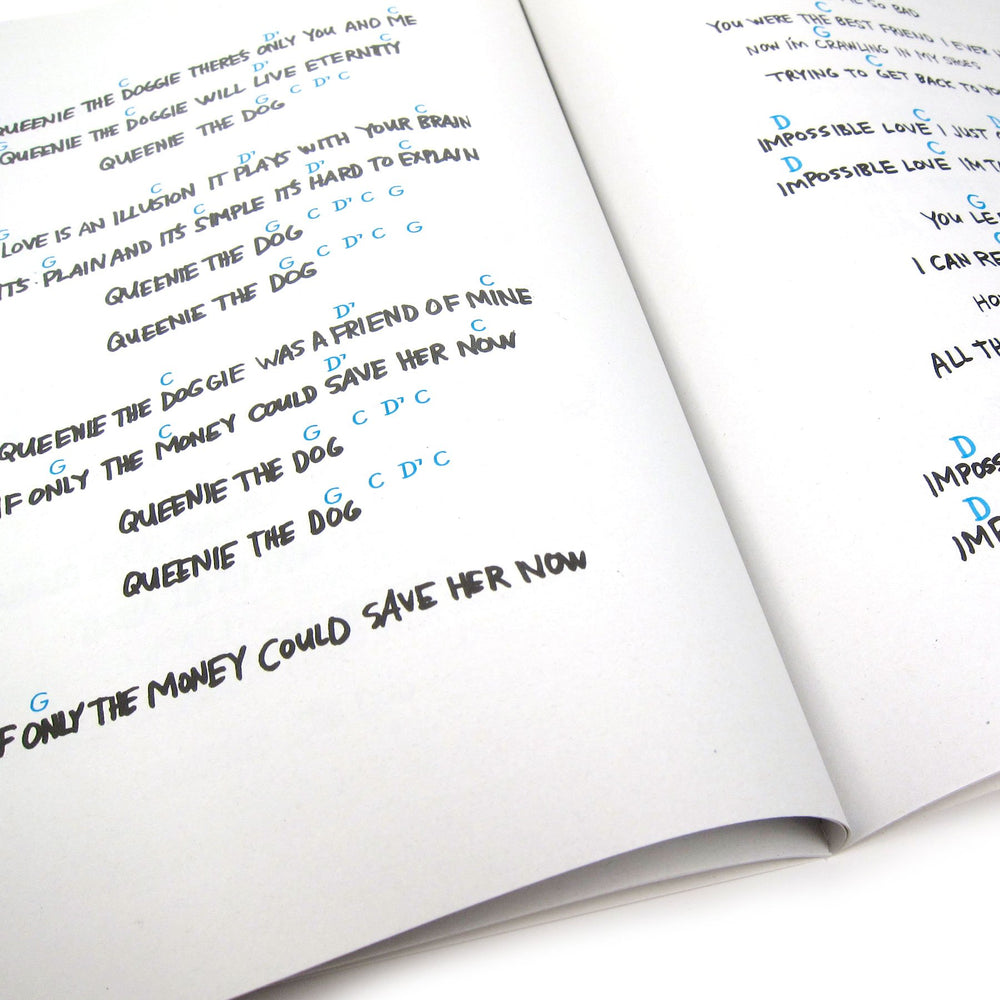 C D⁷ C
QUEENIE THE DOGGIE THERE'S ONLY YOU AND ME
G C D⁷ C
QUEENIE THE DOGGIE WILL LIVE ETERNITTY
G C D⁷ C
QUEENIE THE DOG
G C D⁷ C
LOVE IS AN ILLUSION IT PLAYS WITH YOUR BRAIN
G C D⁷ C
IT'S PLAIN AND IT'S SIMPLE IT'S HARD TO EXPLAIN
G C D⁷ C G
QUEENIE THE DOG
G C D⁷ C G
QUEENIE THE DOG
C D⁷ C
QUEENIE THE DOGGIE WAS A FRIEND OF MINE
G C D⁷ C
IF ONLY THE MONEY COULD SAVE HER NOW
G C D⁷ C
QUEENIE THE DOG
G C D⁷ C
QUEENIE THE DOG
G
IF ONLY THE MONEY COULD SAVE HER NOW
SO BAD
C
YOU WERE THE BEST FRIEND I EVER
G
NOW I'M CRAWLING IN MY SHOES
C
TRYING TO GET BACK TO
D C D
IMPOSSIBLE LOVE I JUST
D C
IMPOSSIBLE LOVE IM
G
YOU
I CAN
ALL
D
D